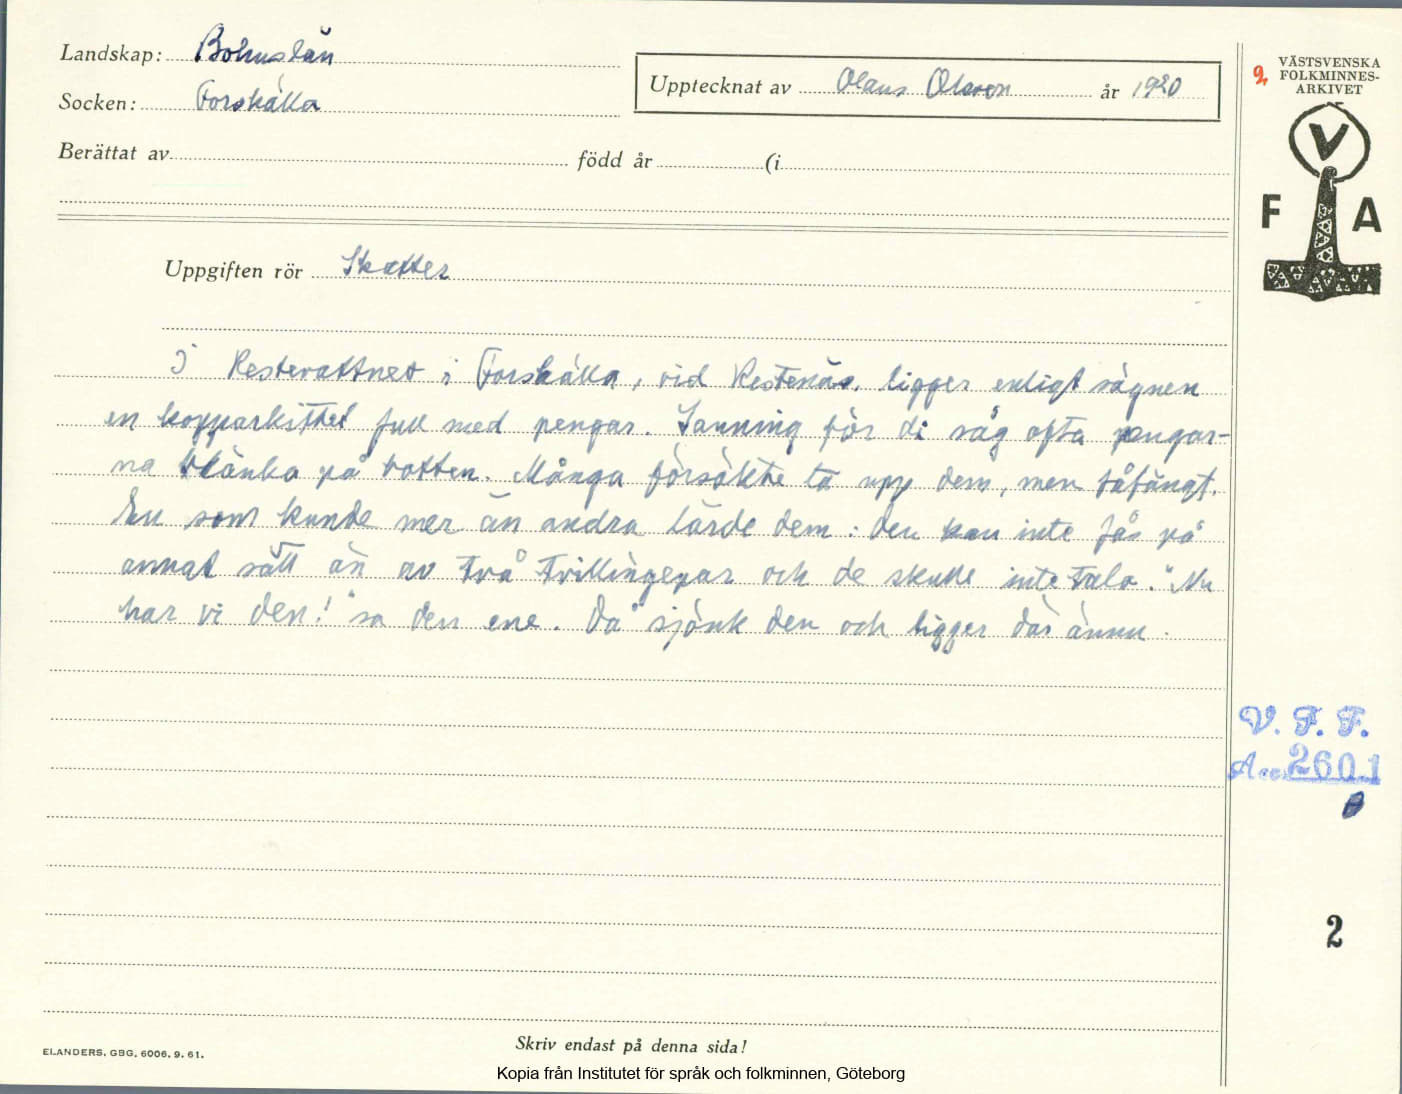 Landskap: Bohuslän
Socken: Forshälla
Upptecknat av Olaus Olsson år 1920
Berättat av född år (i
Uppgiften rör Skatter
I Restevattnet i Forshälla, vid Restenäs, ligger enligt sägnen
en kopparkittel full med pengar. Sanning för di såg ofta pengar-
na blänka på botten. Många försökte ta upp dem, men fåfängt.
En som kunde mer än andra lärde dem: den kan inte fås på
annat sätt än av två tvillingepar och de skulle inte tala. "Nu
har vi den!" sa den ene. Då sjönk den och ligger där ännu.
ELANDERS, GBG, 6006. 9. 61.
Skriv endast på denna sida!
Kopia från Institutet för språk och folkminnen, Göteborg
VÄSTSVENSKA
FOLKMINNES-
ARKIVET
V
F A
V. F. F.
Acc. 2601
2